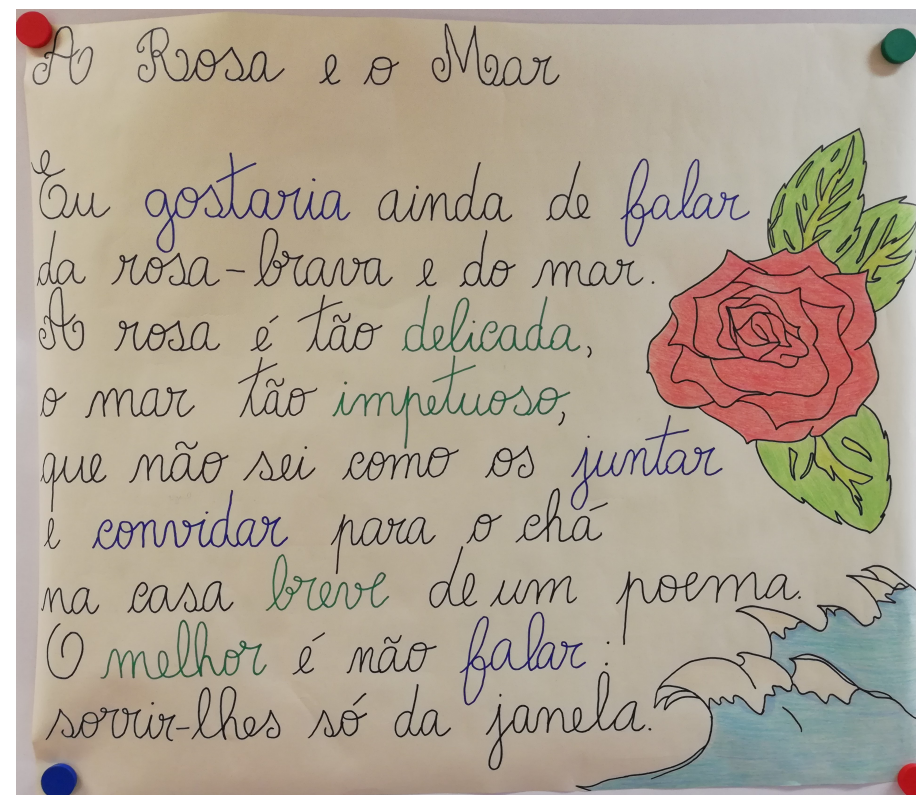 A Rosa e o Mar
Eu gostaria ainda de falar
da rosa-brava e do mar.
A rosa é tão delicada,
o mar tão impetuoso,
que não sei como os juntar
e convidar para o chá
na casa breve de um poema.
O melhor é não falar:
sorrir-lhes só da janela.